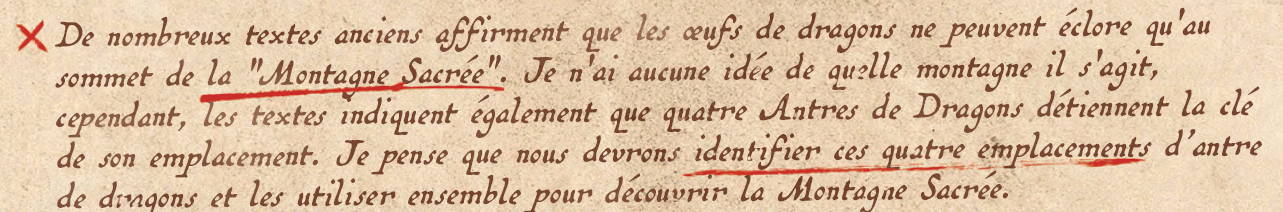 De nombreux textes anciens affirment que les œufs de dragons ne peuvent éclore qu'au
sommet de la "Montagne Sacrée". Je n'ai aucune idée de quelle montagne il s'agit,
cependant, les textes indiquent également que quatre Antres de Dragons détiennent la clé
de son emplacement. Je pense que nous devrons identifier ces quatre emplacements d'antre
de dragons et les utiliser ensemble pour découvrir la Montagne Sacrée.